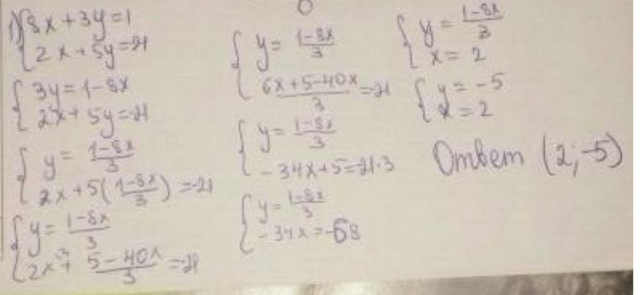 1) { 8x + 3y = 1
2x + 5y = -21
{ 3y = 1-8x
2x + 5y = -21
{ y = (1-8x)/3
2x + 5((1-8x)/3) = -21
{ y = (1-8x)/3
2x + (5-40x)/3 = -21
{ y = (1-8x)/3
(6x+5-40x)/3 = -21
{ y = (1-8x)/3
-34x+5 = -21·3
{ y = (1-8x)/3
-34x = -68
{ y = (1-8x)/3
x = 2
{ y = -5
x = 2
Ответ (2; -5)